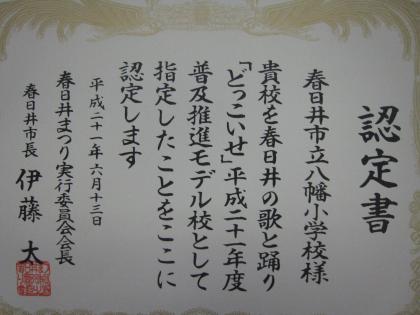 認定書
春日井市立八幡小学校様
貴校を春日井の歌と踊り
「どっこいせ」平成二十一年度
普及推進モデル校として
指定したことをここに
認定します
平成二十一年六月十三日
春日井まつり実行委員会会長
春日井市長 伊藤 太